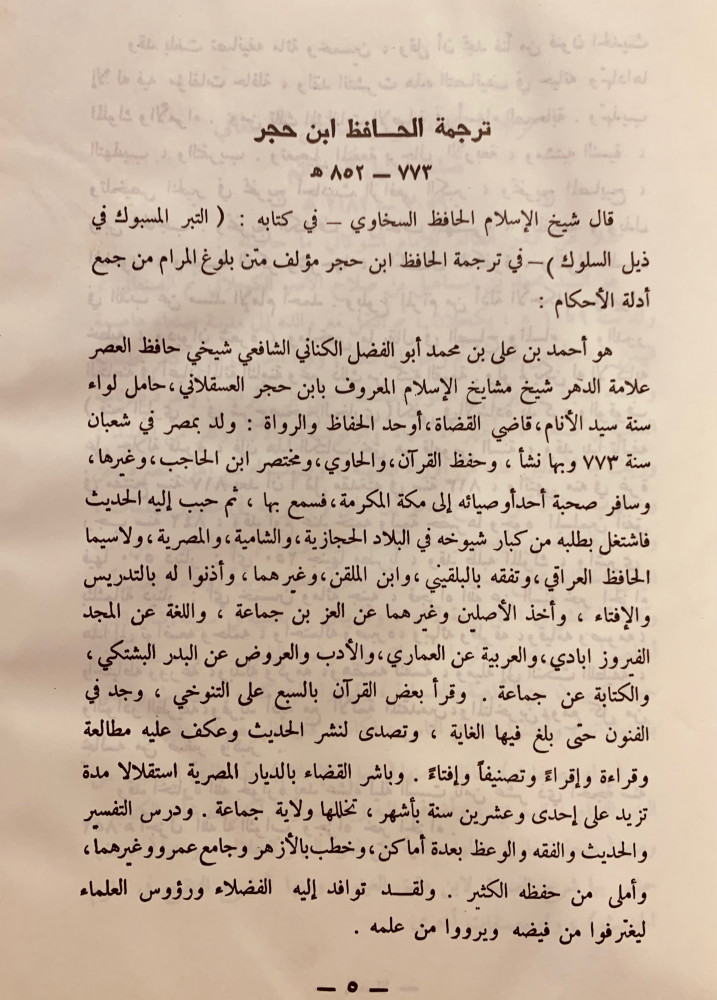 ترجمة الحافظ ابن حجر
٧٧٣ – ٨٥٢ ه
قال شيخ الإسلام الحافظ السخاوي – في كتابه : ( التبر المسبوك في
ذيل السلوك )– في ترجمة الحافظ ابن حجر مؤلف متن بلوغ المرام من جمع
أدلة الأحكام :
هو أحمد بن على بن محمد أبو الفضل الكناني الشافعي شيخي حافظ العصر
علامة الدهر شيخ مشايخ الإسلام المعروف بابن حجر العسقلاني،حامل لواء
سنة سيد الأنام،قاضي القضاة،أوحد الحفاظ والرواة : ولد بمصر في شعبان
سنة ٧٧٣ وبها نشأ ، وحفظ القرآن،والحاوي،ومختصر ابن الحاجب،وغيرها،
وسافر صحبة أحدأوصيائه إلى مكة المكرمة،فسمع بها ، ثم حبب إليه الحديث
فاشتغل بطلبه من كبار شيوخه في البلاد الحجازية،والشامية،والمصرية،ولاسيما
الحافظ العراقي،وتفقه بالبلقيني،وابن الملقن،وغيرهما،وأذنوا له بالتدريس
والإفتاء ، وأخذ الأصلين وغيرهما عن العز بن جماعة ، واللغة عن المجد
الفيروز ابادي،والعربية عن العماري،والأدب والعروض عن البدر البشتكي،
والكتابة عن جماعة . وقرأ بعض القرآن بالسبع على التنوخي ، وجد في
الفنون حتى بلغ فيها الغاية ، وتصدى لنشر الحديث وعكف عليه مطالعة
وقراءة وإقراءً وتصنيفاً وإفتاءً . وباشر القضاء بالديار المصرية استقلالا مدة
تزيد على إحدى وعشرين سنة بأشهر ، تخللها ولاية جماعة . ودرس التفسير
والحديث والفقه والوعظ بعدة أماكن،وخطب بالأزهر وجامع عمرو وغيرهما،
وأملى من حفظه الكثير . ولقد توافد إليه الفضلاء ورؤوس العلماء
ليغترفوا من فيضه ويرووا من علمه .
– ٥ –